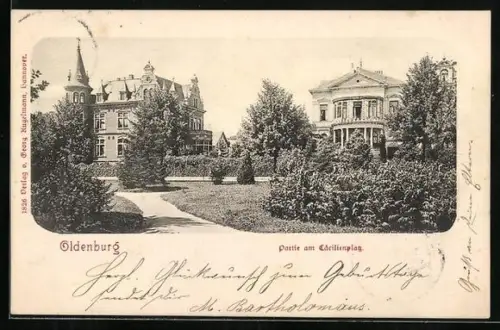 1826 Verlag v. Georg Kugelmann, Hannover.
Oldenburg
Partie am Cäcilienplatz.
Herzl. Glückwunsch zum Geburtstage
sendet dir M. Bartholomäus.
Gruß an Deine Eltern.